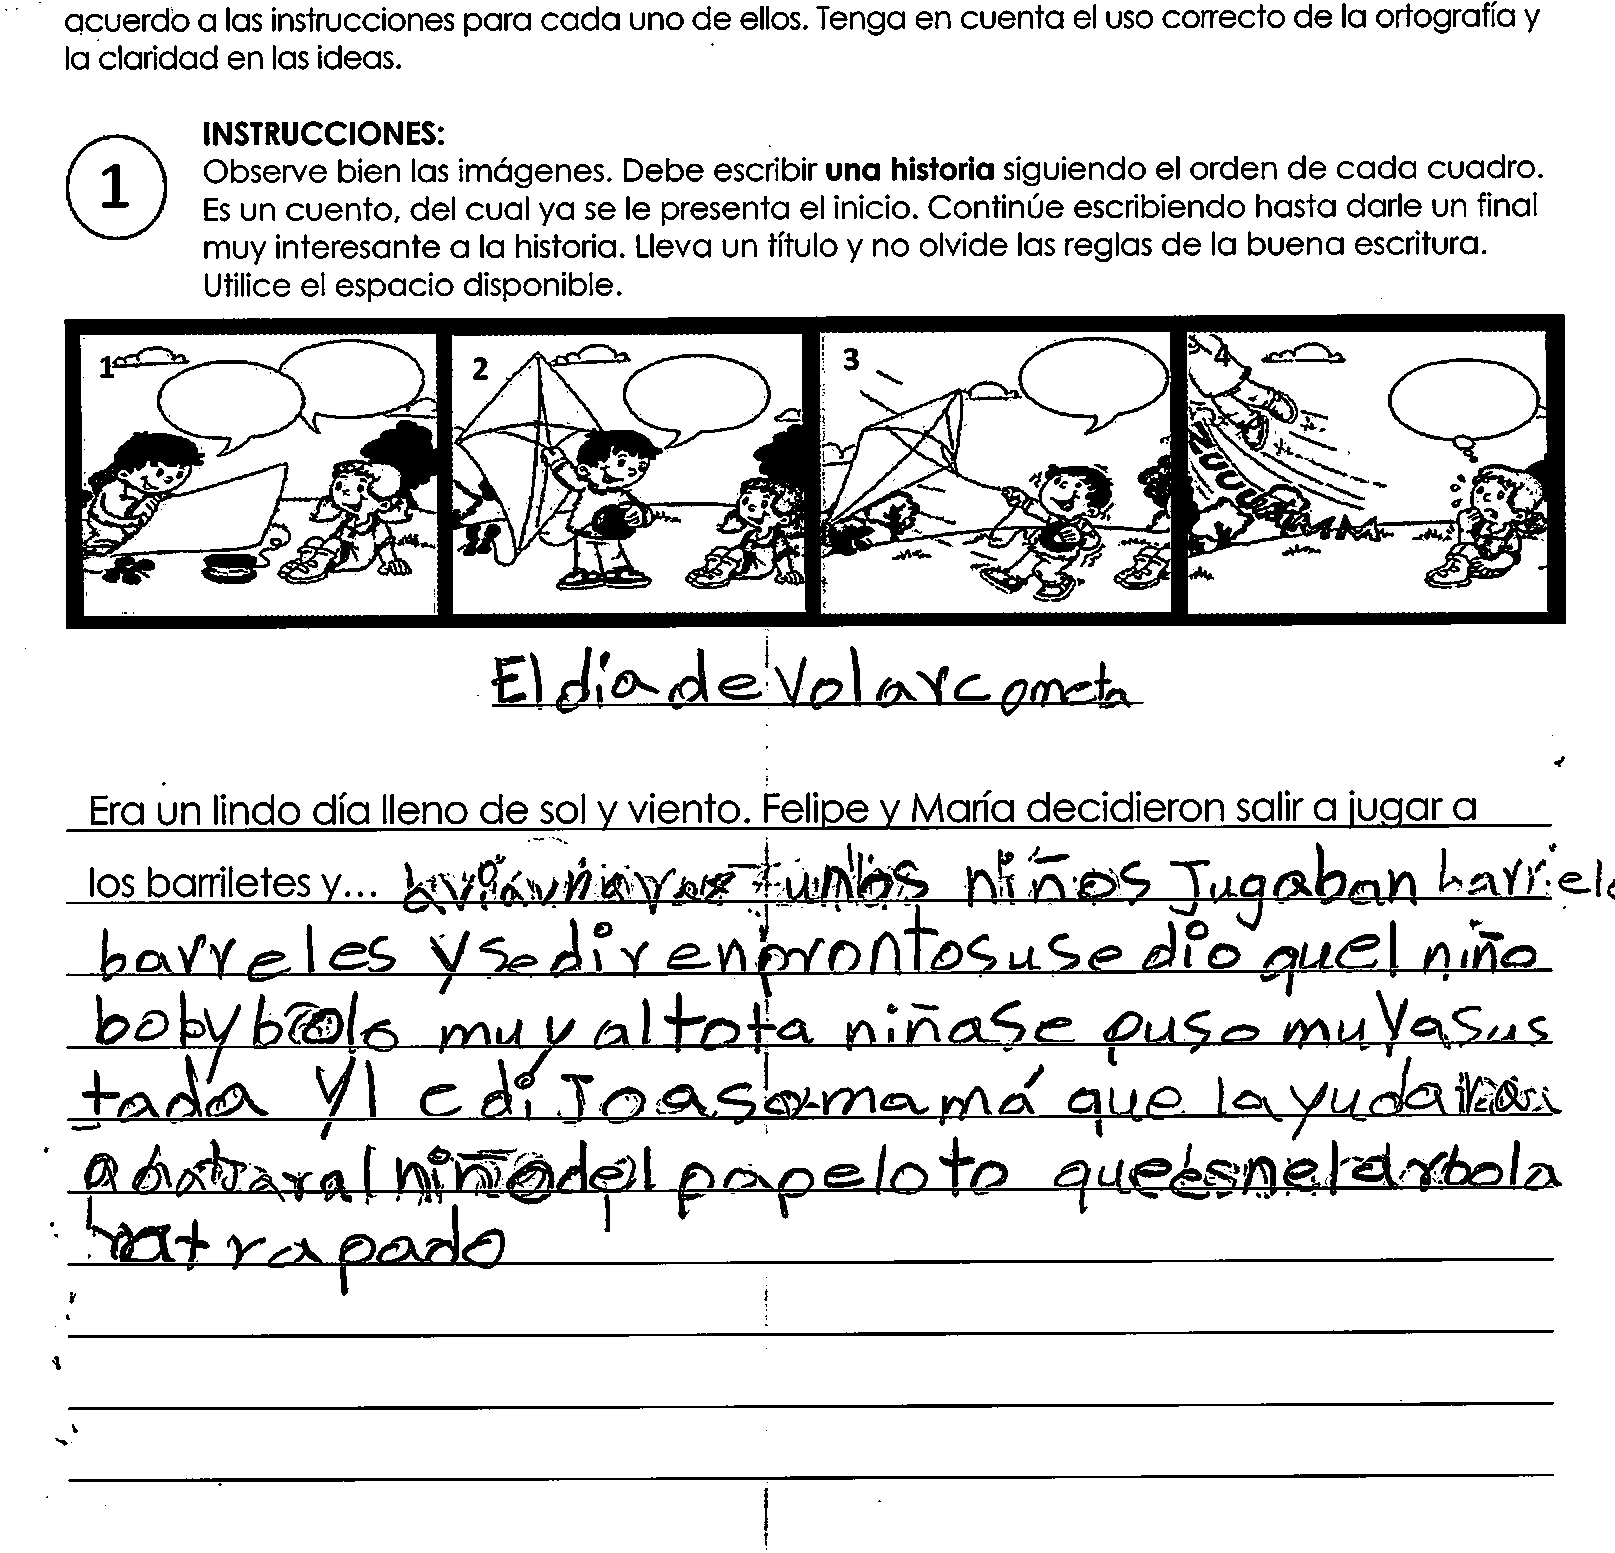 acuerdo a las instrucciones para cada uno de ellos. Tenga en cuenta el uso correcto de la ortografía y
la claridad en las ideas.
1
INSTRUCCIONES:
Observe bien las imágenes. Debe escribir una historia siguiendo el orden de cada cuadro.
Es un cuento, del cual ya se le presenta el inicio. Continúe escribiendo hasta darle un final
muy interesante a la historia. Lleva un título y no olvide las reglas de la buena escritura.
Utilice el espacio disponible.
1 2 3 4
El día de volar cometa
Era un lindo día lleno de sol y viento. Felipe y María decidieron salir a jugar a
los barriletes y... unos niños Jugaban
barreles y se dir en pronto su se dio quel niño
boby bolo muy alto ta niña se puso muy asus
tada yl e di Joa so mamá que la yuda
al niño del papeloto que esnel arbol a
trapado